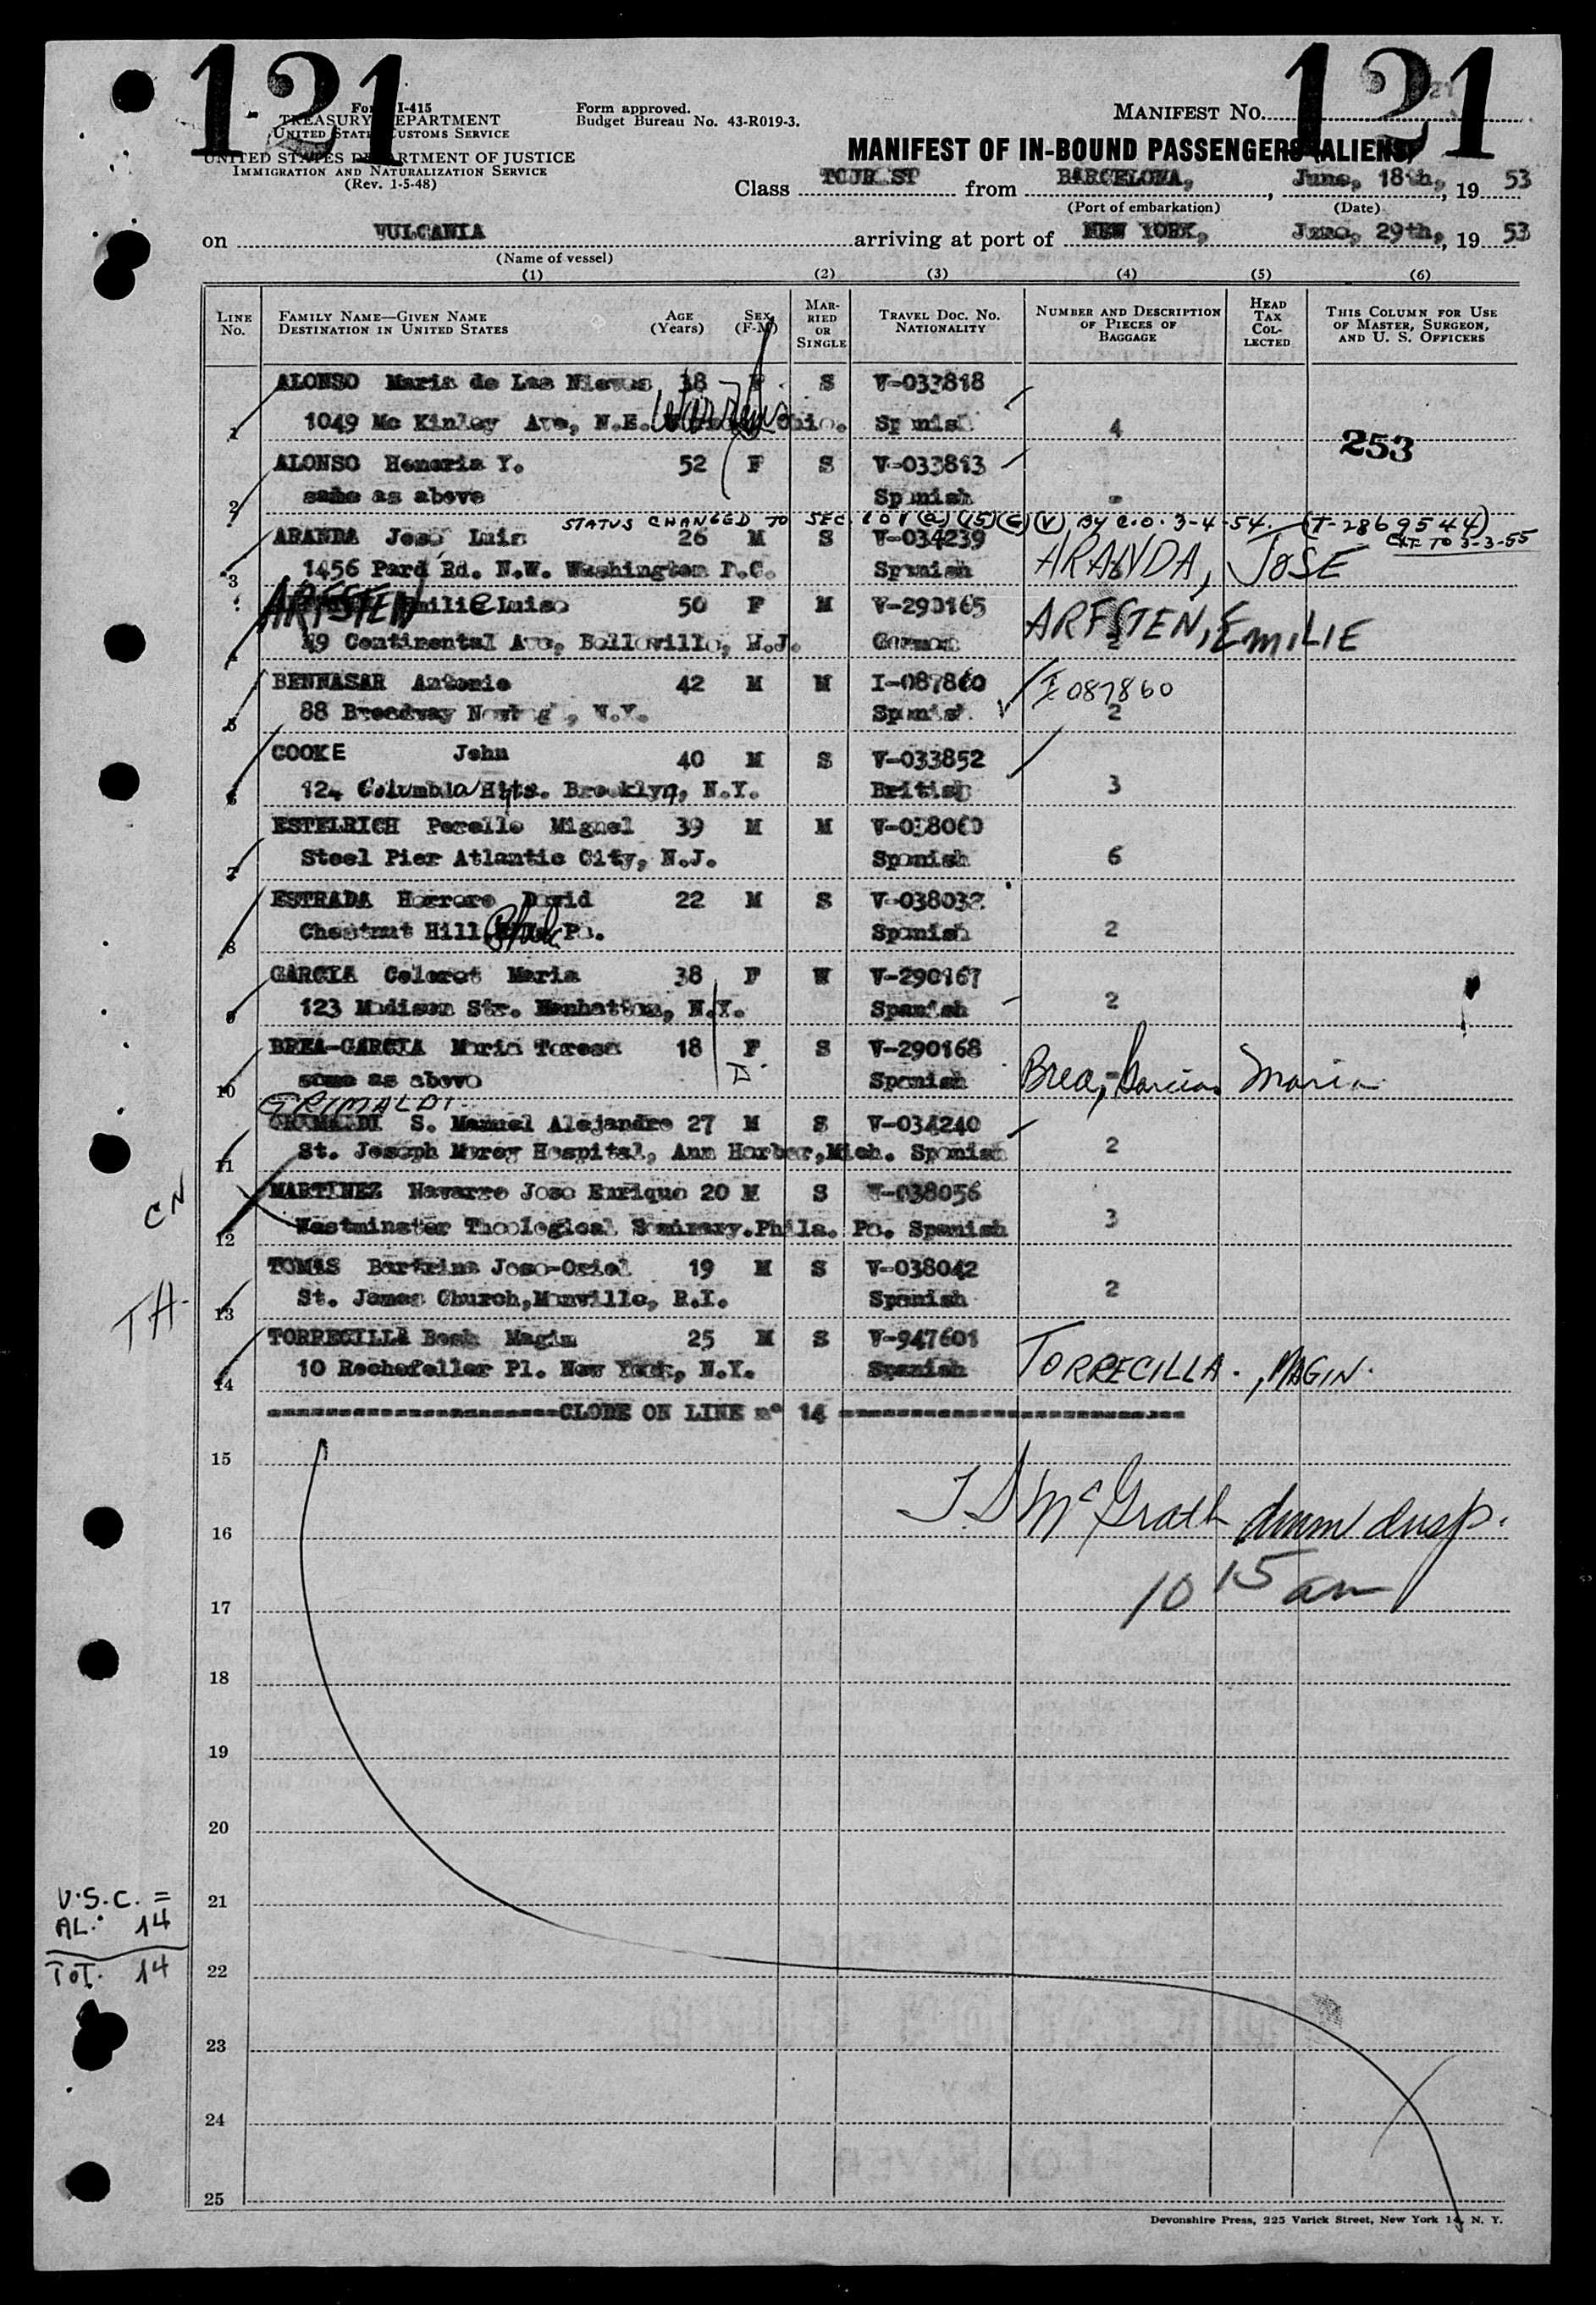 121 121
Form I-415
TREASURY DEPARTMENT
UNITED STATES CUSTOMS SERVICE
UNITED STATES DEPARTMENT OF JUSTICE
IMMIGRATION AND NATURALIZATION SERVICE
(Rev. 1-5-48)
Form approved.
Budget Bureau No. 43-R019-3.
MANIFEST NO.
MANIFEST OF IN-BOUND PASSENGERS (ALIENS)
Class TOURIST from BARCELONA, June, 18th, 1953
(Port of embarkation) (Date)
on VULCANIA arriving at port of NEW YORK, June, 29th, 1953
(Name of vessel)
(1) (2) (3) (4) (5) (6)
LINE No. FAMILY NAME—GIVEN NAME DESTINATION IN UNITED STATES AGE (Years) SEX (F-M) MARRIED OR SINGLE TRAVEL DOC. NO. NATIONALITY NUMBER AND DESCRIPTION OF PIECES OF BAGGAGE HEAD TAX COLLECTED THIS COLUMN FOR USE OF MASTER, SURGEON, AND U. S. OFFICERS
ALONSO Maria de Las Nieves 38 F S V-033818
1 1049 Mc Kinley Ave, N.E. Warren Ohio. Spanish 4 253
ALONSO Honoria Y. 52 F S V-033813
2 same as above Spanish -
STATUS CHANGED TO SEC. 101 (a) (15) (G) (V) By C.O. 3-4-54. (T-2869544)
EXT TO 3-3-55
ARANDA José Luis 26 M S V-034239
3 1456 Pard Rd. N.W. Washington D.C. Spanish ARANDA, JOSE
ARFSTEN Emilie Luise 50 F M V-290165
4 49 Continental Ave, Belleville, N.J. German 2 ARFSTEN, EMILIE
BENNASAR Antonio 42 M M I-087860 I 087860
5 88 Broadway Newb g , N.Y. Spanish 2
COOKE John 40 M S V-033852
6 124 Columbia Hgts. Brooklyn, N.Y. British 3
ESTELRICH Perello Miguel 39 M M V-038060
7 Steel Pier Atlantic City, N.J. Spanish 6
ESTRADA Herrero David 22 M S V-038032
8 Chestnut Hill Phila Pa. Spanish 2
GARCIA Coloret Maria 38 F W V-290167
9 123 Madison Str. Manhattan, N.Y. Spanish 2
BREA-GARCIA Maria Teresa 18 F S V-290168
10 same as above Spanish - Brea, Garcia Maria
GRIMALDI
GRIMALDI S. Manuel Alejandro 27 M S V-034240
11 St. Joseph Mercy Hospital, Ann Harber, Mich. Spanish 2
CN
MARTINEZ Navarro Jose Enrique 20 M S V-038056
12 Westminster Theological Seminary. Phila. Pa. Spanish 3
TOMAS Bartrina Jose-Oriol 19 M S V-038042
TH-
13 St. James Church, Manville, R.I. Spanish 2
TORRECILLA Bosh Magin 25 M S V-947601
14 10 Rochefeller Pl. New York, N.Y. Spanish TORRECILLA, MAGIN.
CLOSE ON LINE nº 14
15
T.S. McGrath Imm Insp.
16
10 15 am
17
18
19
20
U.S.C. =
21
AL. 14
TOT. 14
22
23
24
25
Devonshire Press, 225 Varick Street, New York 14, N. Y.